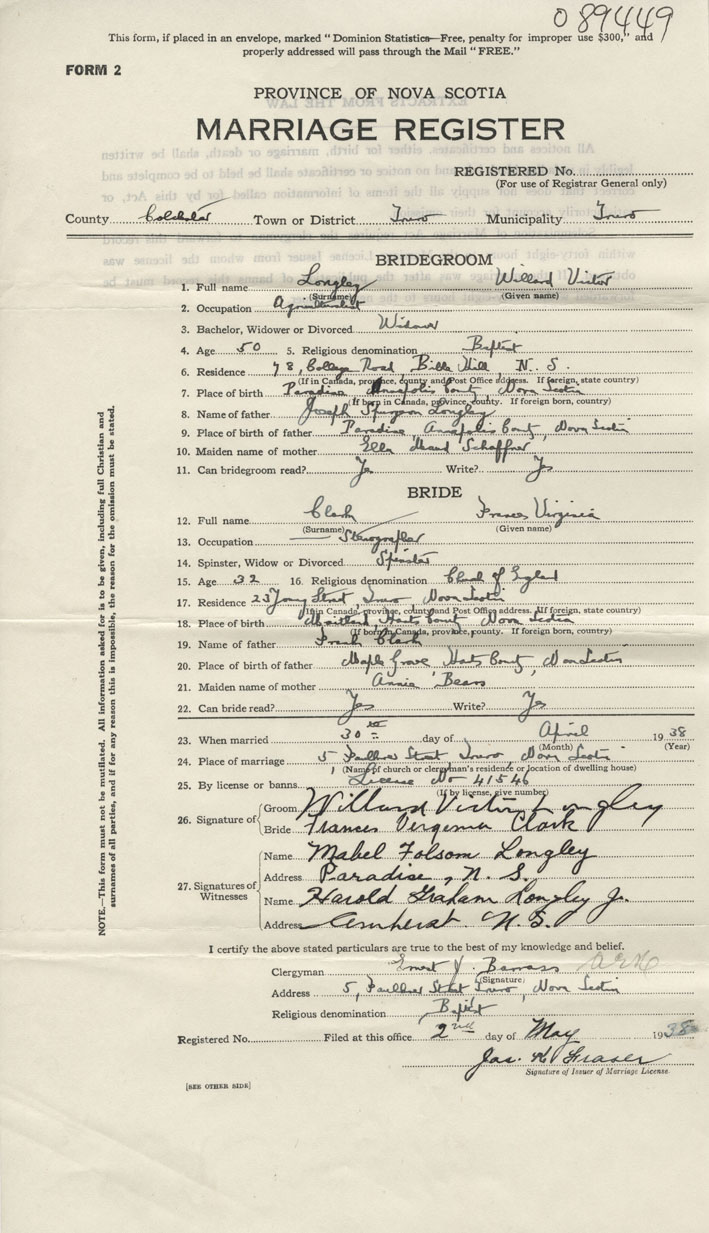 089449
This form, if placed in an envelope, marked "Dominion Statistics—Free, penalty for improper use $300," and
properly addressed will pass through the Mail "FREE."
FORM 2
PROVINCE OF NOVA SCOTIA
MARRIAGE REGISTER
REGISTERED No.
(For use of Registrar General only)
County Colchester Town or District Truro Municipality Truro
BRIDEGROOM
1. Full name Longley Willard Victor
(Surname) (Given name)
2. Occupation Agriculturalist
3. Bachelor, Widower or Divorced Widower
4. Age 50 5. Religious denomination Baptist
6. Residence 78, College Road, Bible Hill, N. S.
(If in Canada, province, county and Post Office address. If foreign, state country)
7. Place of birth Paradise Annapolis County Nova Scotia
(If born in Canada, province, county. If foreign born, country)
8. Name of father Joseph Spurgeon Longley
9. Place of birth of father Paradise, Annapolis County, Nova Scotia
10. Maiden name of mother Ella Maud Schaffner
11. Can bridegroom read? Yes Write? Yes
BRIDE
12. Full name Clark Frances Virginia
(Surname) (Given name)
13. Occupation Stenographer
14. Spinster, Widow or Divorced Spinster
15. Age 32 16. Religious denomination Church of England
17. Residence 25 Young Street, Truro Nova Scotia
(If in Canada, province, county and Post Office address. If foreign, state country)
18. Place of birth Maitland, Hants County Nova Scotia
(If born in Canada, province, county. If foreign born, country)
19. Name of father Frank Clark
20. Place of birth of father Maple Grove Hants County, Nova Scotia
21. Maiden name of mother Annie Bears
22. Can bride read? Yes Write? Yes
23. When married 30th day of April 1938
(Month) (Year)
24. Place of marriage 5 Faulkner Street Truro, Nova Scotia
(Name of church or clergyman's residence or location of dwelling house)
25. By license or banns License No 41546
(If by license, give number)
26. Signature of Groom Willard Victor Longley
Bride Frances Virginia Clark
27. Signatures of Witnesses
Name Mabel Folsom Longley
Address Paradise, N. S.
Name Harold Graham Longley Jr.
Address Amherst N. S.
I certify the above stated particulars are true to the best of my knowledge and belief.
Clergyman Ernest J. Barrass
(Signature)
Address 5, Faulkner Street Truro, Nova Scotia
Religious denomination Baptist
Registered No. Filed at this office 2nd day of May 1938
Jas. K. Fraser
Signature of Issuer of Marriage License.
[SEE OTHER SIDE]
NOTE.—This form must not be mutilated. All information asked for is to be given, including full Christian and
surnames of all parties, and if for any reason this is impossible, the reason for the omission must be stated.